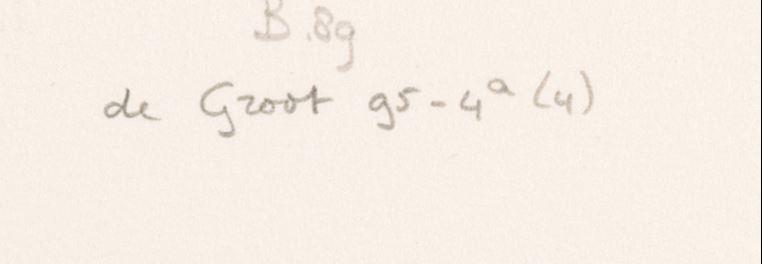 B.89
de Groot 95-4ᵃ (4)